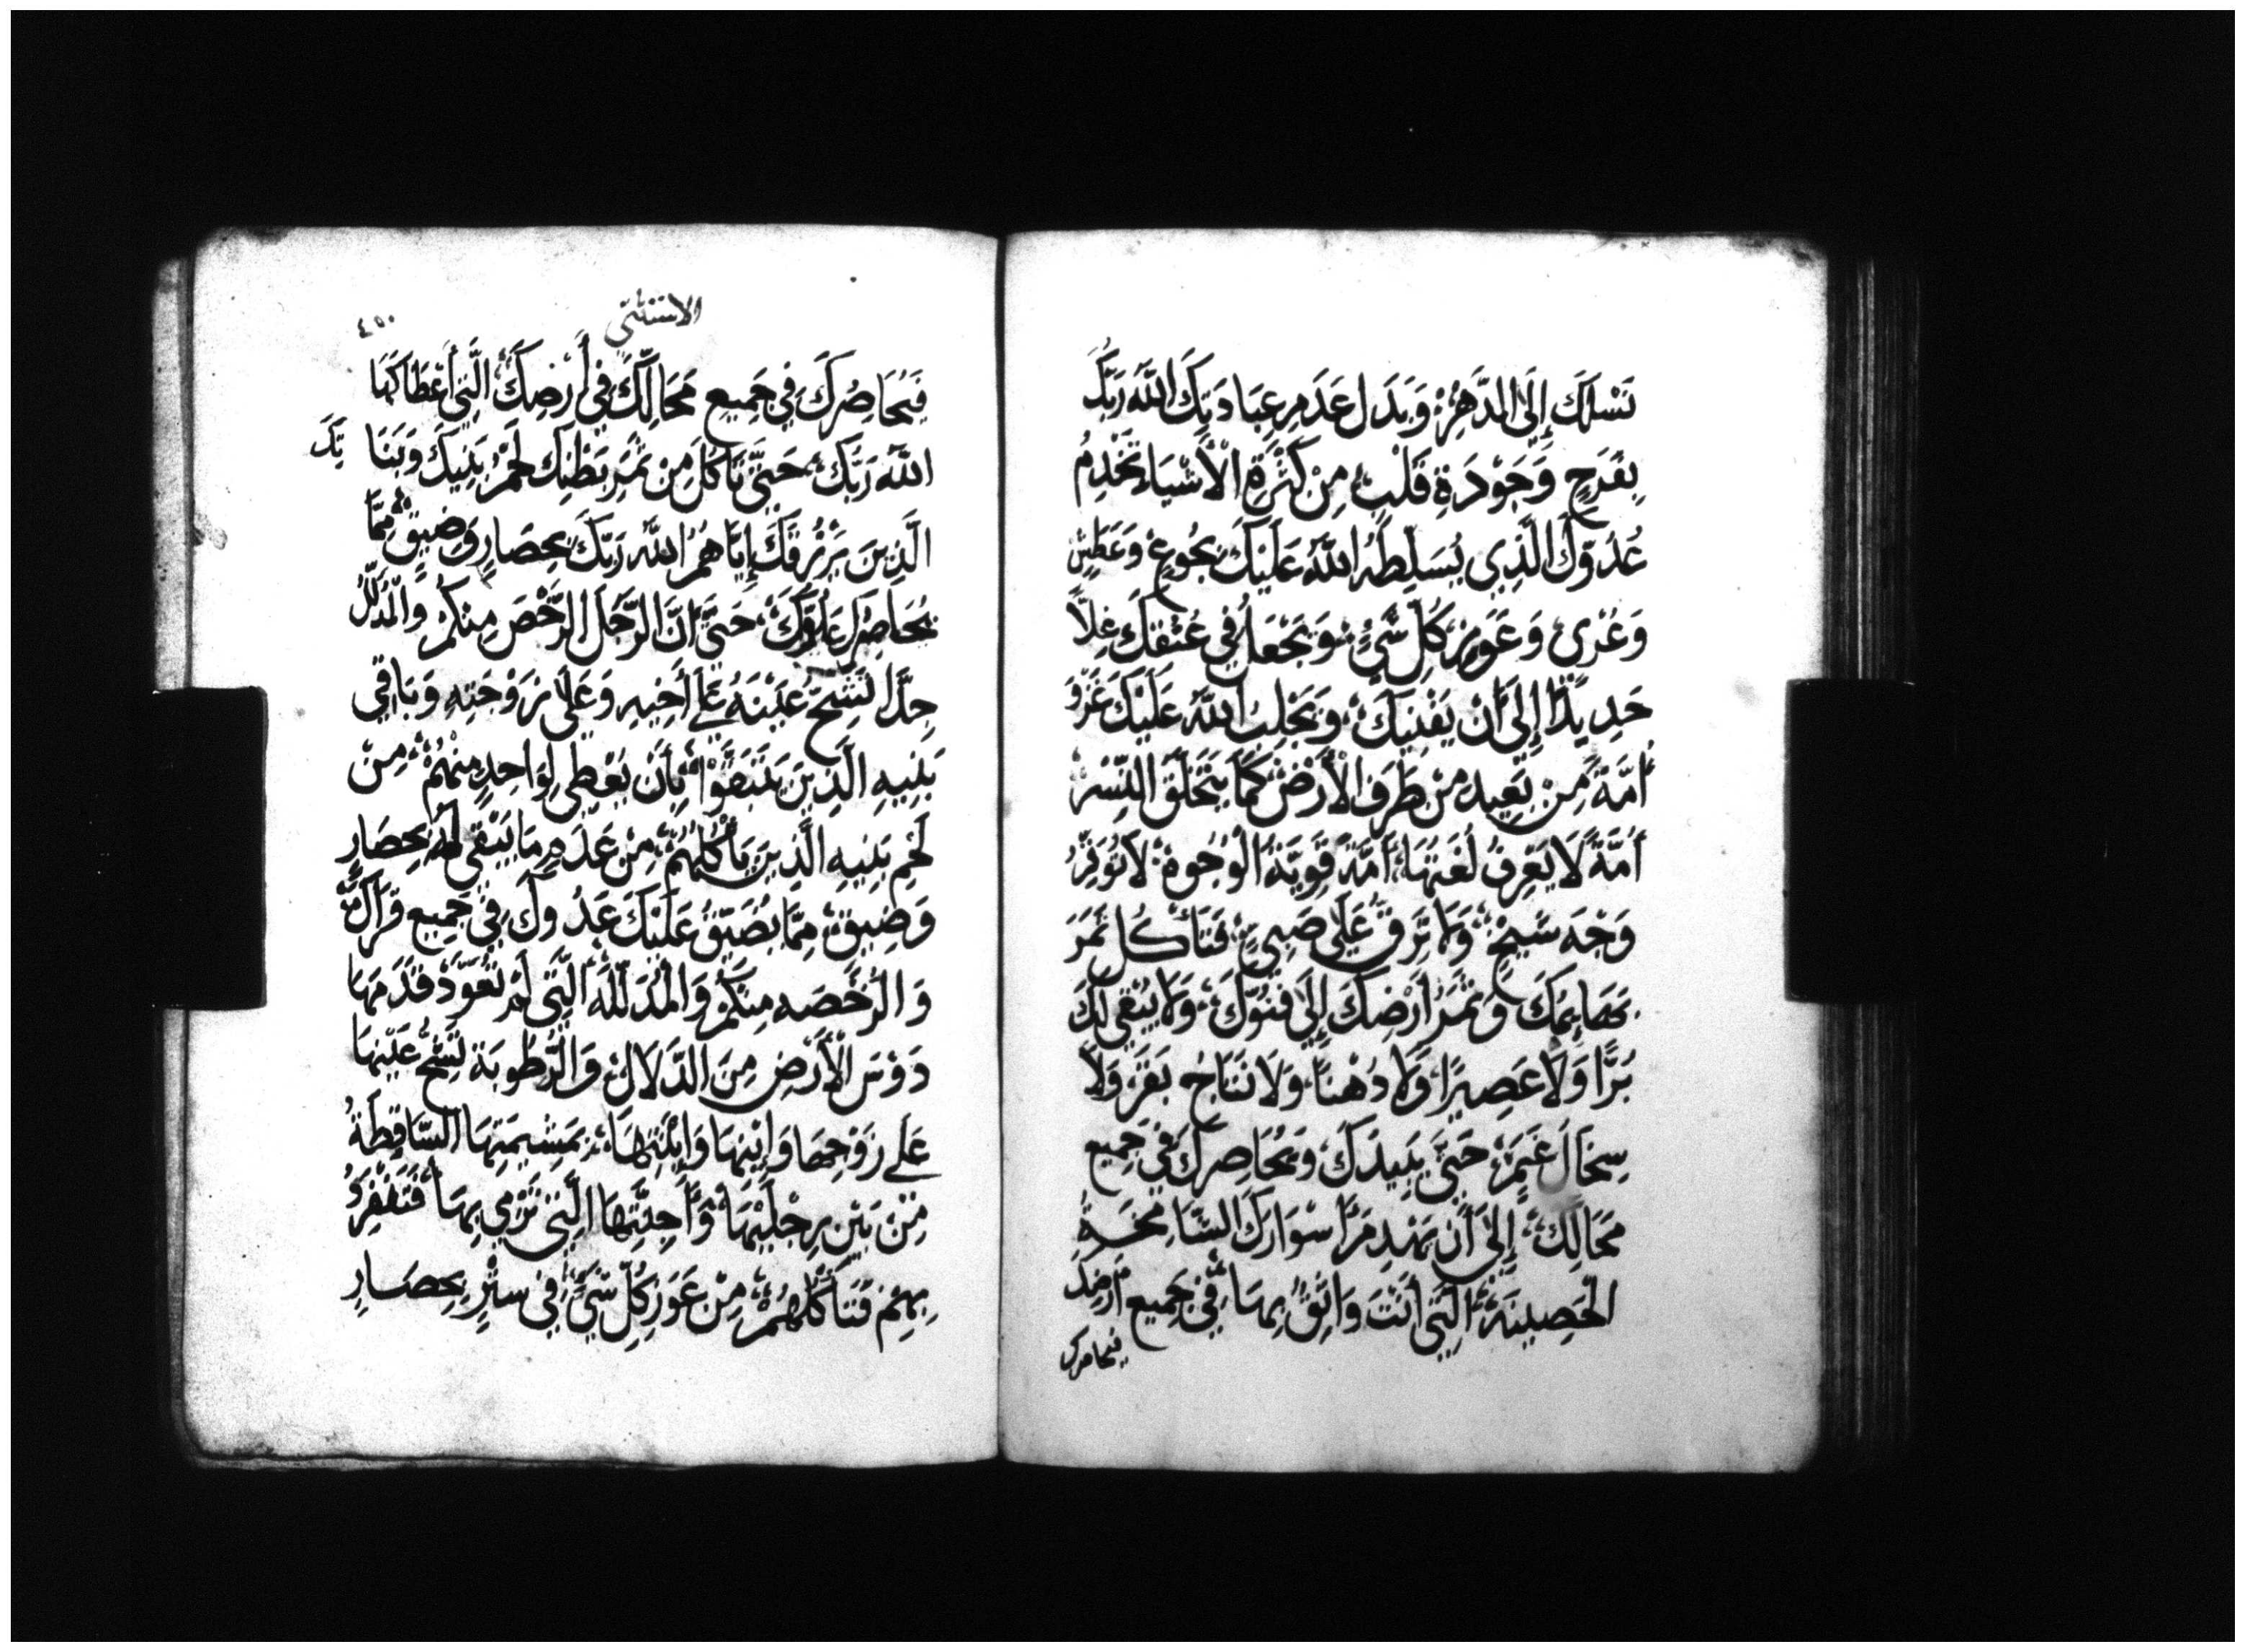 نَسْلِكَ إِلَى الدَّهْرِ، وَبَدَل عَدَمِ عِبَادَتِكَ اللَّهَ رَبَّكَ
بِفَرَحٍ وَجَوْدَةِ قَلْبٍ مِنْ كَثْرَةِ الْأَشْيَاءِ تَخْدِمُ
عَدُوَّكَ الَّذِي يُسَلِّطَهُ اللَّهُ عَلَيْكَ بِجُوعٍ وَعَطَشٍ
وَعُرْيٍ وَعَوَزِ كُلِّ شَيْءٍ، وَيَجْعَلُ فِي عُنُقِكَ غِلًّا
حَدِيدًا إِلَى أَنْ يَفْنِيَكَ، وَيَجْلِبُ اللَّهُ عَلَيْكَ غَزْوَ
أُمَّةً مِنْ بَعِيدٍ مِنْ طَرَفِ الْأَرْضِ كَمَا يَتَحَلَّقُ النِّسْرُ
أُمَّةً لَا يَعْرِفُ لُغَتَهَا، أُمَّةً قَوِيَّةُ الْوُجُوهِ لَا تُوَقِّرُ
وَجْهَ شَيْخٍ، وَلَا تَرِقُّ عَلَى صَبِيٍّ، فَتَأْكُل ثَمَرَ
بَهَايِمُكَ وَثَمَرُ أَرْضِكَ إِلَى فَنُوِّكَ، وَلَا يُبْقِي لَكَ
بُرًّا وَلَا عَصِيرًا، وَلَا دُهْنًا، وَلَا نَتَاجُ بَقَرٍ، وَلَا
سِخَالَ غَنَمٍ، حَتَّى يُبِيدَكَ، وَيُحَاصِرَكَ فِي جَمِيعِ
مَحَالِّكَ، إِلَى أَنْ يَهْدِمَ أَسْوَارَكَ الشَّامِخَةِ
الْحَصِينَةِ، الَّتِي أَنْتَ وَاثِقٌ بِهَا، فِي جَمِيعِ أَرْضِكَ
فيحاصرك
الاستثنى
٤٥٠
فَيُحَاصِرُكَ فِي جَمِيعِ مَحَالِّكَ فِي أَرْضِكَ، الَّتِي أَعْطَاكَهَا
اللَّهُ رَبَّكَ، حَتَّى تَأْكُلَ مِنْ ثَمَرِ بَطْنِكَ لَحْمَ بَنِيكَ وَبَنَا
تِكَ
الَّذِينَ يَرْزُقَكَ إِيَّاهُمُ اللَّهُ رَبَّكَ بِحِصَارٍ وَضِيقٍ، مِمَّا
يُحَاصِرُكَ عَدُوَّكَ، حَتَّى أَنَّ الرَّجُلَ الرَّخْصَ مِنْكُمْ وَالْمُدَلَّلُ
جِدًّا تَشِحُّ عَيْنَهُ عَلَى أَخِيهِ وَعَلَى زَوْجَتِهِ وَبَاقِي
بَنِيهِ الَّذِينَ يَتَبَقَّوْا، بِأَنْ يُعْطِي لِوَاحِدٍ مِنْهُمْ، مِنْ
لَحْمِ بَنِيهِ الَّذِينَ يَأْكُلُهُمْ، مِنْ عَدَمِ مَا يَبْقَى لَهُ بِحِصَارٍ
وَضِيقٍ، مِمَّا يُضَيِّقُ عَلَيْكَ عَدُوكَ، فِي جَمِيعِ قَرَاكَ،
وَالرَّخْصَه مِنْكُمْ وَالْمُدَلَّلَةُ الَّتِي لَمْ تُعَوَّدْ قَدَمَهَا
دَوْسَ الْأَرْضِ مِنَ الدَّلَالِ، وَالرُّطُوبَةِ تَشِحُّ عَيْنَهَا
عَلَى زَوْجِهَا وَابْنِهَا وَابْنَتِهَا، بِمَشِيمَتِهَا السَّاقِطَةُ
مِنْ بَيْنِ رِجْلَيْهَا، وَأَجِنَّتِهَا الَّتِي تَرْمِي بِهَا، فَتَنْفَرِدُ
بِهِمْ فَتَأْكُلُهُمْ، مِنْ عَوَزِ كُلِّ شَيْءٍ، فِي سِتْرٍ بِحِصَارٍ